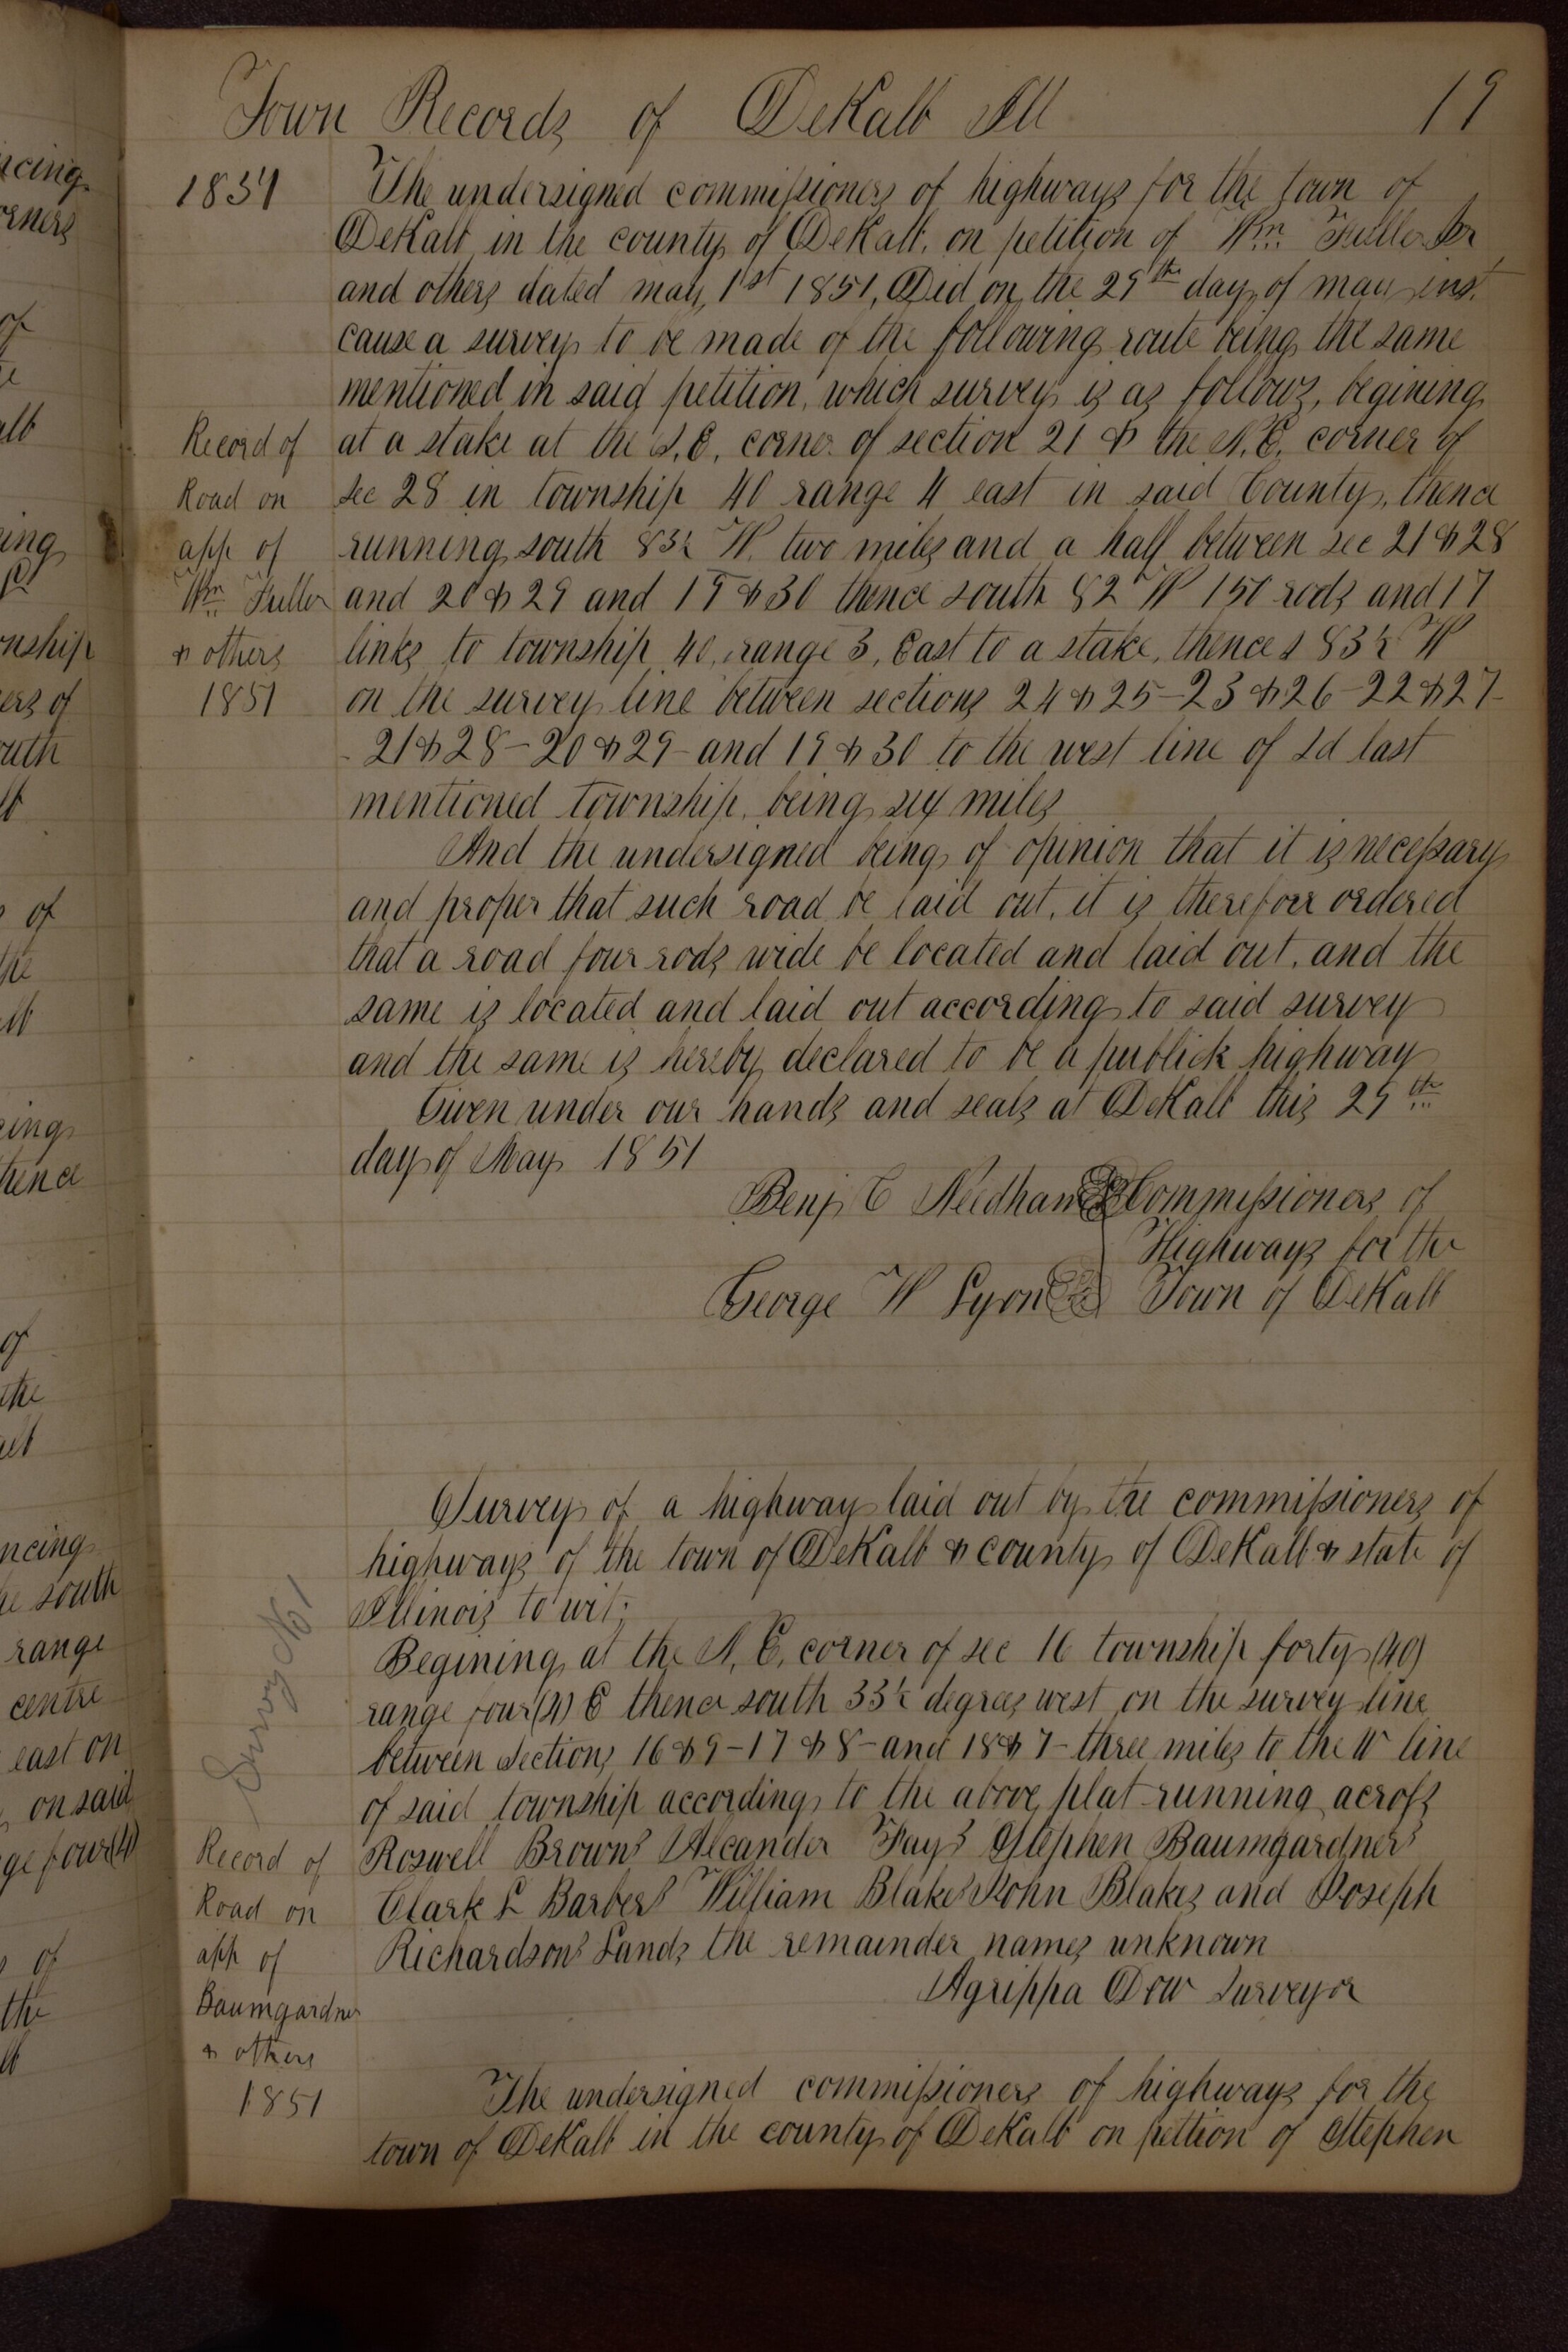 Town Records of DeKalb Ill 19
1851
The undersigned commissioners of highways for the town of
DeKalb in the county of DeKalb, on petition of Wm. Fuller
and others dated may 1st 1851, Did on the 29th day of may inst.
cause a survey to be made of the following route being the same
mentioned in said petition, which survey is as follows, begining
at a stake at the S.E. corner of section 21 & the N.E. corner of
sec 28 in township 40 range 4 east in said County, thence
running south 83½ W. two miles and a half between sec 21 & 28
and 20 & 29 and 19 & 30 thence south 82 W 150 rods and 17
links to township 40, range 3, East to a stake, thence S 83½ W
on the survey line between sections 24 & 25 – 23 & 26 – 22 & 27 –
- 21 & 28 – 20 & 29 – and 19 & 30 to the west line of Sd last
mentioned township, being six miles
And the undersigned being of opinion that it is necessary
and proper that such road be laid out, it is therefore ordered
that a road four rods wide be located and laid out, and the
same is located and laid out according to said survey
and the same is hereby declared to be a publick highway
Given under our hands and seals at DeKalb this 29th
day of May 1851
Record of
Road on
app of
Wm Fuller
& others
1851
Benj C Needham Commissioners of
Highways for the
George W Lyon Town of DeKalb
Survey of a highway laid out by the commissioners of
highways of the town of DeKalb & county of DeKalb & state of
Illinois to wit;
Begining at the N. E. corner of sec 16 township forty (40)
range four (4) E thence south 83½ degrees west on the survey line
between Sections 16 & 9 – 17 & 8 – and 18 & 7 – three miles to the W line
of said township according to the above plat running across
Roswell Browns Alcander Fays Stephen Baumgardners
Clark L Barbers William Blakes John Blakes and Joseph
Richardsons Lands the remainder names unknown
Agrippa Dow Surveyor
Survey No 1
Record of
Road on
app of
Baumgardner
& others
1851
The undersigned commissioners of highways for the
town of DeKalb in the county of DeKalb on pettion of Stephen